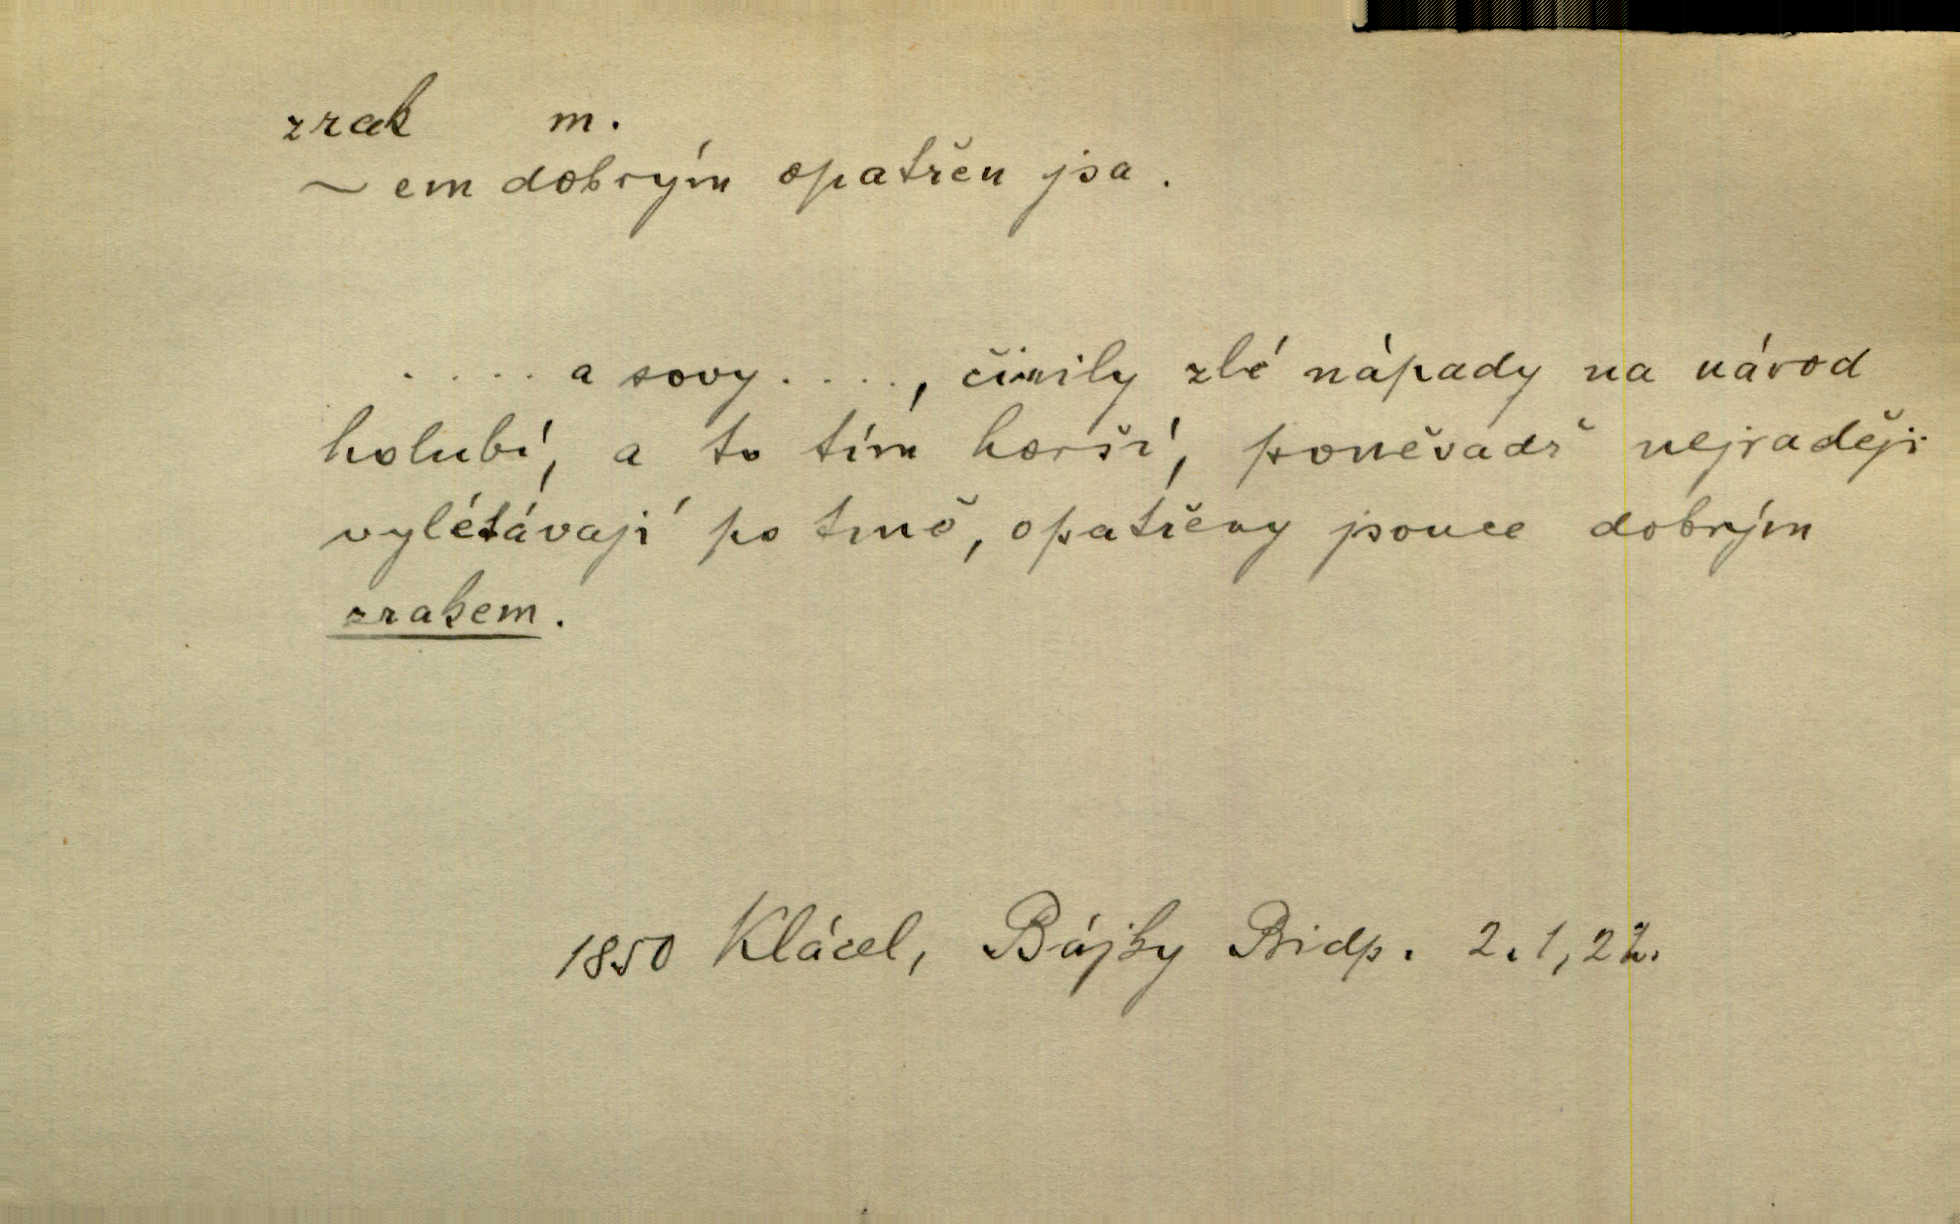 zrak m.
~ em dobrým opatřen jsa.
..... a sovy ....., činily zlé nápady na národ
holubí, a to tím horší, poněvadž nejraději
vylétávají po tmě, opatřeny jsouce dobrým
zrakem.
1850 Klácel, Bájky Bidp. 2.1,